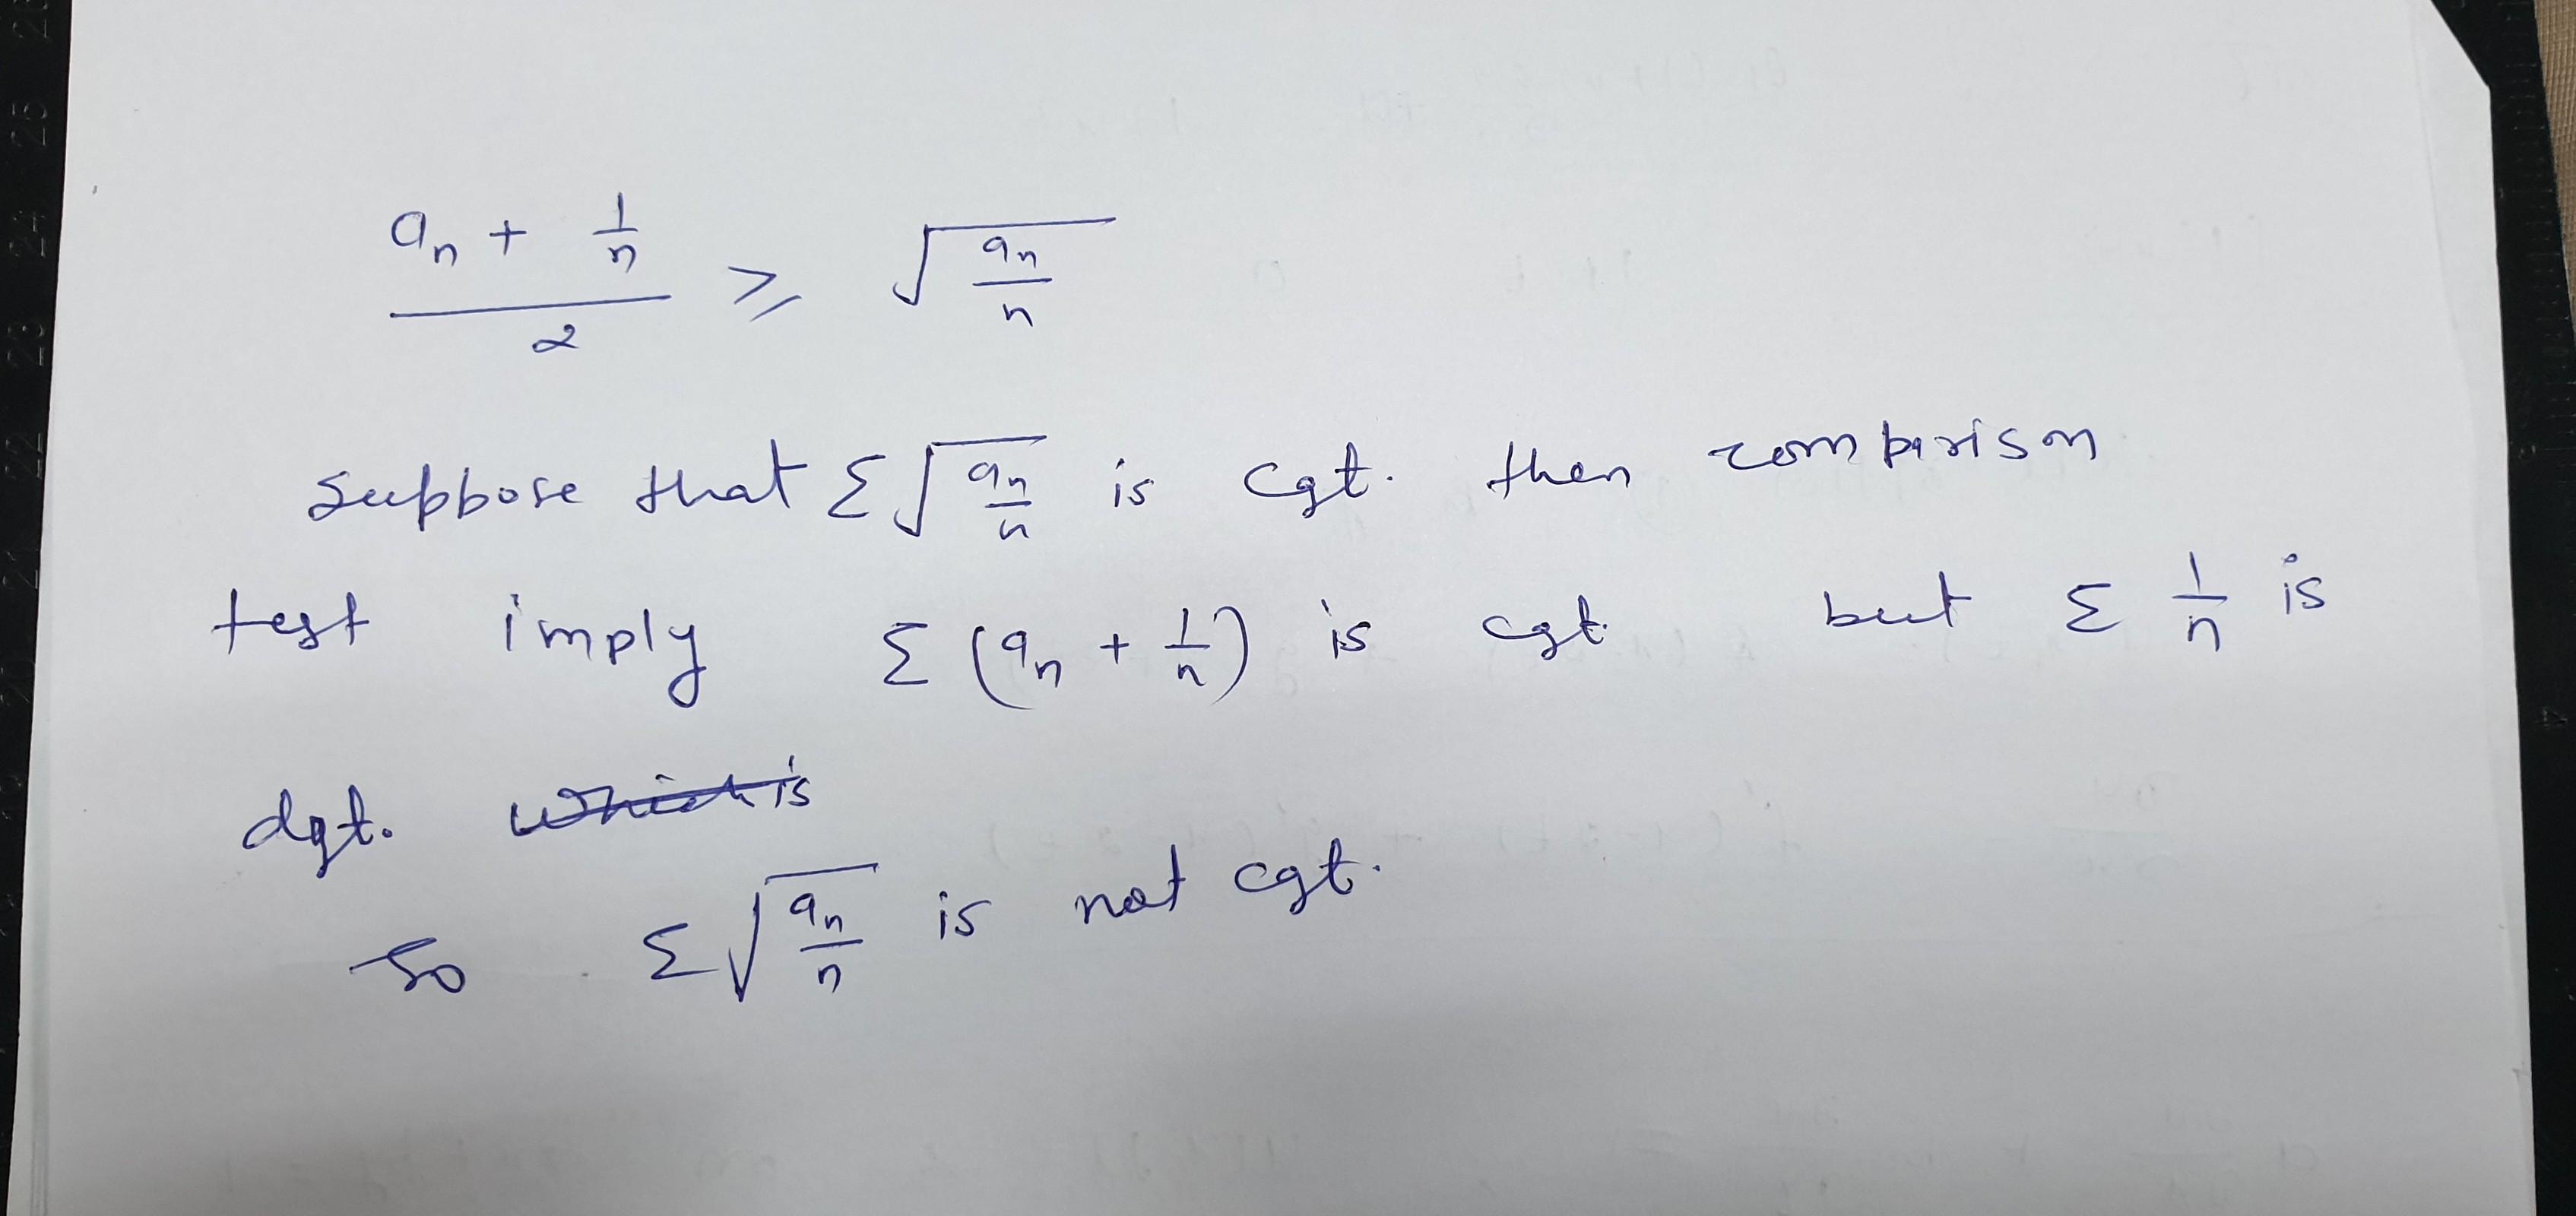 (a_n + 1/n)/2 ⩾ √(a_n/n)
Suppose that Σ√(a_n/n) is cgt. then comparison
test imply Σ(a_n + 1/n) is cgt. but Σ 1/n is
dgt. which is
So Σ√(a_n/n) is not cgt.